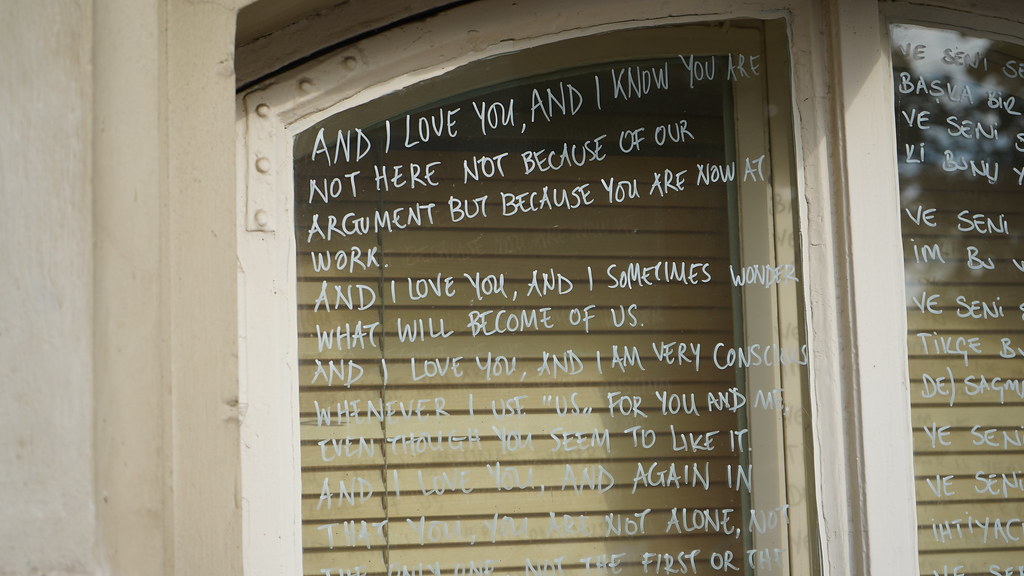 AND I LOVE YOU, AND I KNOW YOU ARE
NOT HERE NOT BECAUSE OF OUR
ARGUMENT BUT BECAUSE YOU ARE NOW AT
WORK.
AND I LOVE YOU, AND I SOMETIMES WONDER
WHAT WILL BECOME OF US.
AND I LOVE YOU, AND I AM VERY CONSCIOUS
WHENEVER I USE "US„ FOR YOU AND ME,
EVEN THOUGH YOU SEEM TO LIKE IT.
AND I LOVE YOU, AND AGAIN IN
THAT YOU, YOU ARE NOT ALONE, NOT
THE ONLY ONE, NOT THE FIRST OR THE
VE SENİ SE
BAŞKA BİR
VE SENİ S
Kİ BUNU Y
VE SENİ
İM. BU
VE SENİ S
TİKÇE BU
DE) SAÇM
VE SENİ
VE SENİ
İHTİYAC
VE SE